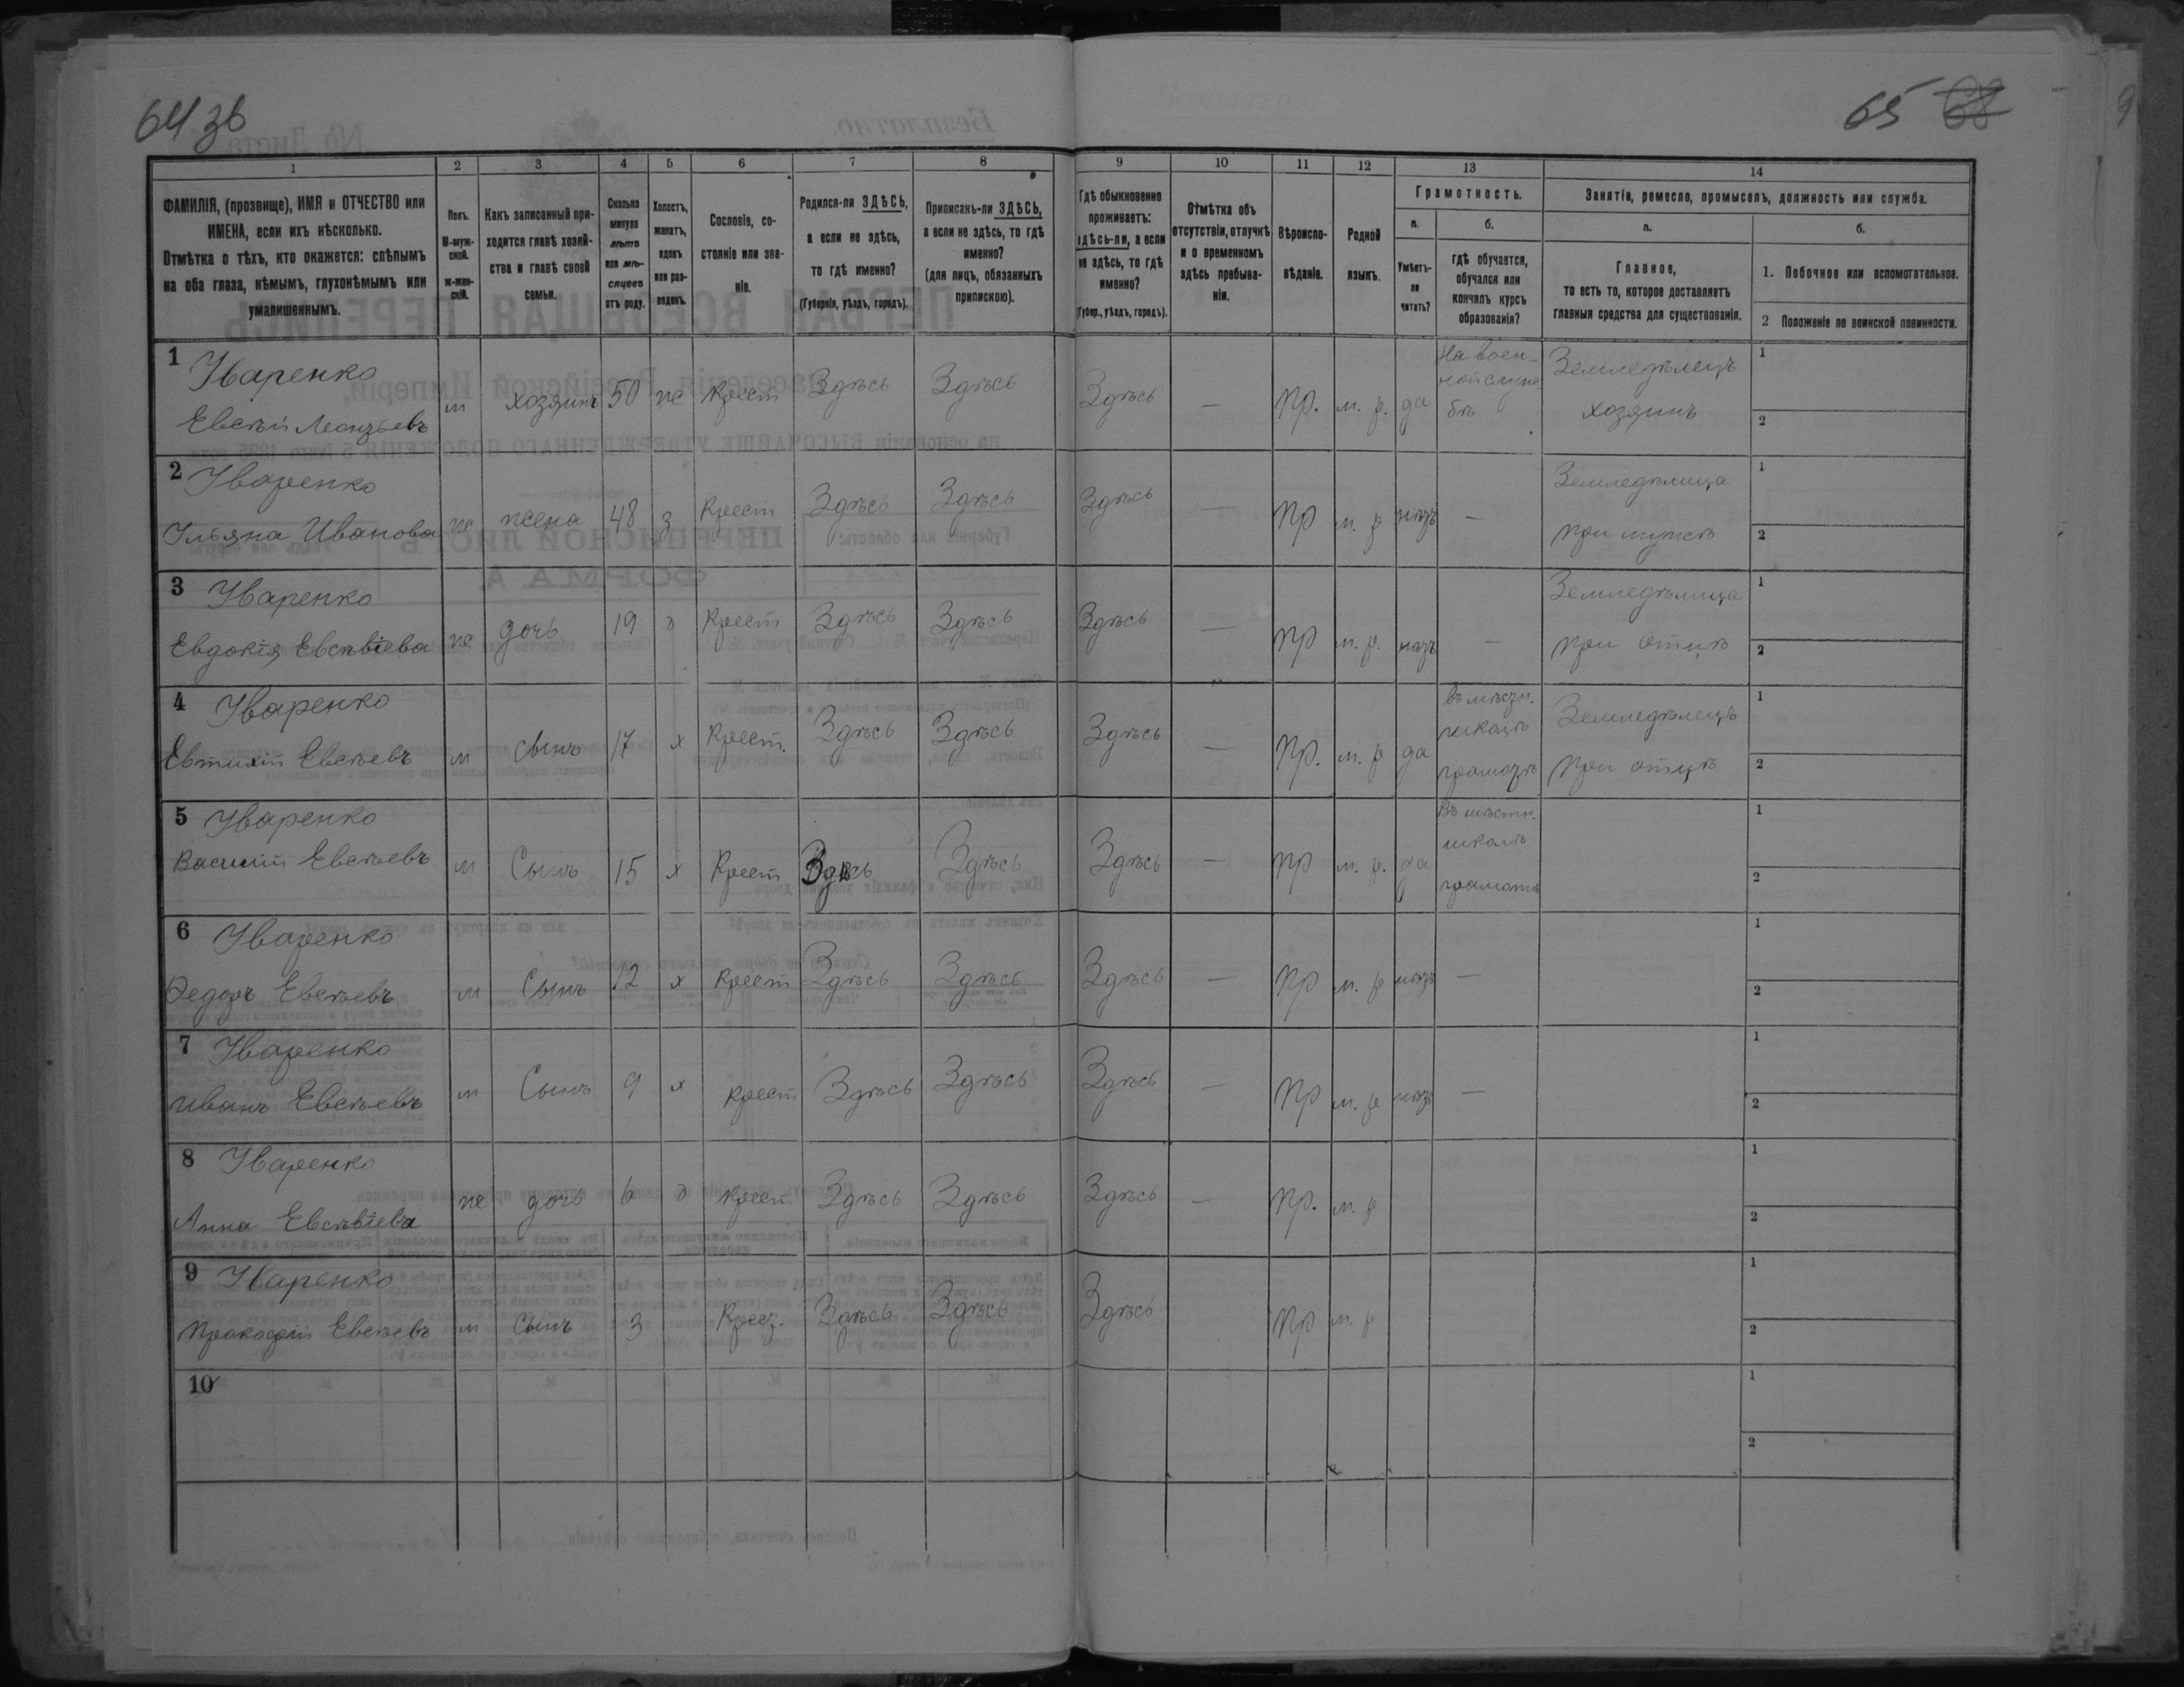 64 зв
65 68
1 2 3 4 5 6 7 8 9 10 11 12 13 14
ФАМИЛІЯ, (прозвище), ИМЯ и ОТЧЕСТВО или ИМЕНА, если ихъ нѣсколько.
Отмѣтка о тѣхъ, кто окажется: слѣпымъ на оба глаза, нѣмымъ, глухонѣмымъ или умалишеннымъ.
Полъ. М-мужской. ж-женскій.
Какъ записанный приходится главѣ хозяйства и главѣ своей семьи.
Сколько минуло лѣтъ или мѣсяцевъ отъ роду.
Холостъ, женатъ, вдовъ или разведенъ.
Сословіе, состояніе или званіе.
Родился-ли ЗДѢСЬ, а если не здѣсь, то гдѣ именно? (Губернія, уѣздъ, городъ).
Приписанъ-ли ЗДѢСЬ, а если не здѣсь, то гдѣ именно? (для лицъ, обязанныхъ припискою).
Гдѣ обыкновенно проживаетъ: здѣсь-ли, а если не здѣсь, то гдѣ именно? (Губер., уѣздъ, городъ).
Отмѣтка объ отсутствіи, отлучкѣ и о временномъ здѣсь пребываніи.
Вѣроисповѣданіе.
Родной языкъ.
Грамотность.
а. Умѣетъ-ли читать?
б. гдѣ обучается, обучался или кончилъ курсъ образованія?
Занятіе, ремесло, промыселъ, должность или служба.
а. Главное, то есть то, которое доставляетъ главныя средства для существованія.
б.
1. Побочное или вспомогательное.
2 Положеніе по воинской повинности.
1 Уваренко м хозяинъ 50 ж Крест Здѣсь Здѣсь Здѣсь — пр. м. р. да На военной службѣ Земледѣлецъ хозяинъ 1 2
Евсѣй
2 Уваренко ж жена 48 з Крест Здѣсь Здѣсь Здѣсь — пр м. р нѣтъ — Земледѣлица при мужѣ 1 2
Ульяна Иванова
3 Уваренко ж дочь 19 д Крест Здѣсь Здѣсь Здѣсь — пр м. р. нѣтъ — Земледѣлица при отцѣ 1 2
Евдокія Евсѣвіева
4 Уваренко м сынъ 17 х Крест. Здѣсь Здѣсь Здѣсь — пр. м. р да въ мѣстн. школѣ грамотѣ Земледѣлецъ при отцѣ 1 2
Евтихій Евсѣевъ
5 Уваренко м Сынъ 15 х Крест Здѣсь Здѣсь Здѣсь — пр м. р. да Въ мѣстн. школѣ грамотѣ 1 2
Василій Евсѣевъ
6 Уваренко м Сынъ 12 х Крест Здѣсь Здѣсь Здѣсь — пр м. р нѣтъ — 1 2
Федоръ Евсѣевъ
7 Уваренко м Сынъ 9 х Крест Здѣсь Здѣсь Здѣсь — пр м. р нѣтъ — 1 2
Иванъ Евсѣевъ
8 Уваренко ж дочь 6 д Крест Здѣсь Здѣсь Здѣсь — пр. м. р 1 2
Анна Евсѣвіева
9 Уваренко м Сынъ 3 Крест. Здѣсь Здѣсь Здѣсь пр м. р 1 2
Прокофій Евсѣевъ
10 1 2